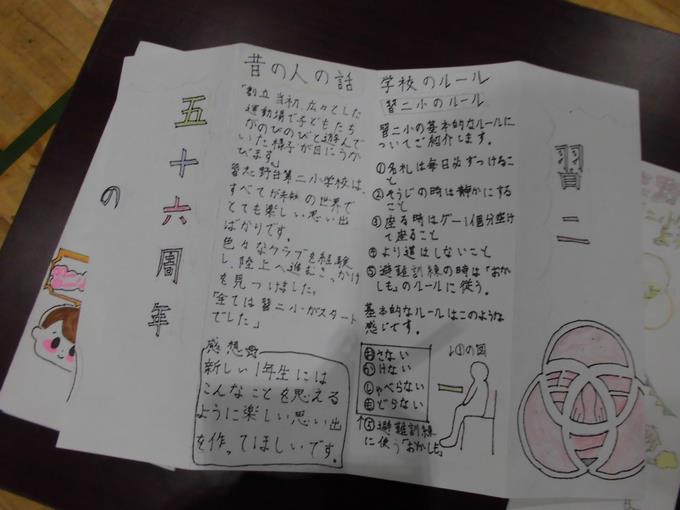 習二
学校のルール
習二小のルール
習二小の基本的なルールに
ついてご紹介します。
①名札は毎日必ずつけるこ
と
②そうじの時は静かにする
こと
③座る時はグー1個分空け
て座ること
④より道はしないこと
⑤避難訓練の時は「おかし
も」のルールに従う。
基本的なルールはこのような
感じです。
おさない
かけない
しゃべらない
もどらない
↑⑤避難訓練
に使う「おかしも」
↓③の図
昔の人の話
「創立当初、広々とした
運動場で子どもたち
がのびのびと遊んで
いた様子が目にうか
びます。」
習志野台第二小学校は、
すべてが未知の世界で
とても楽しい思い出
ばかりです。
色々なクラブを経験
し、陸上へ進むきっかけ
を見つけました。
「全ては習二小がスタート
でした」
感想
新しい1年生には
こんなことを思える
ように楽しい思い出
を作ってほしいです。
五十六周年
の